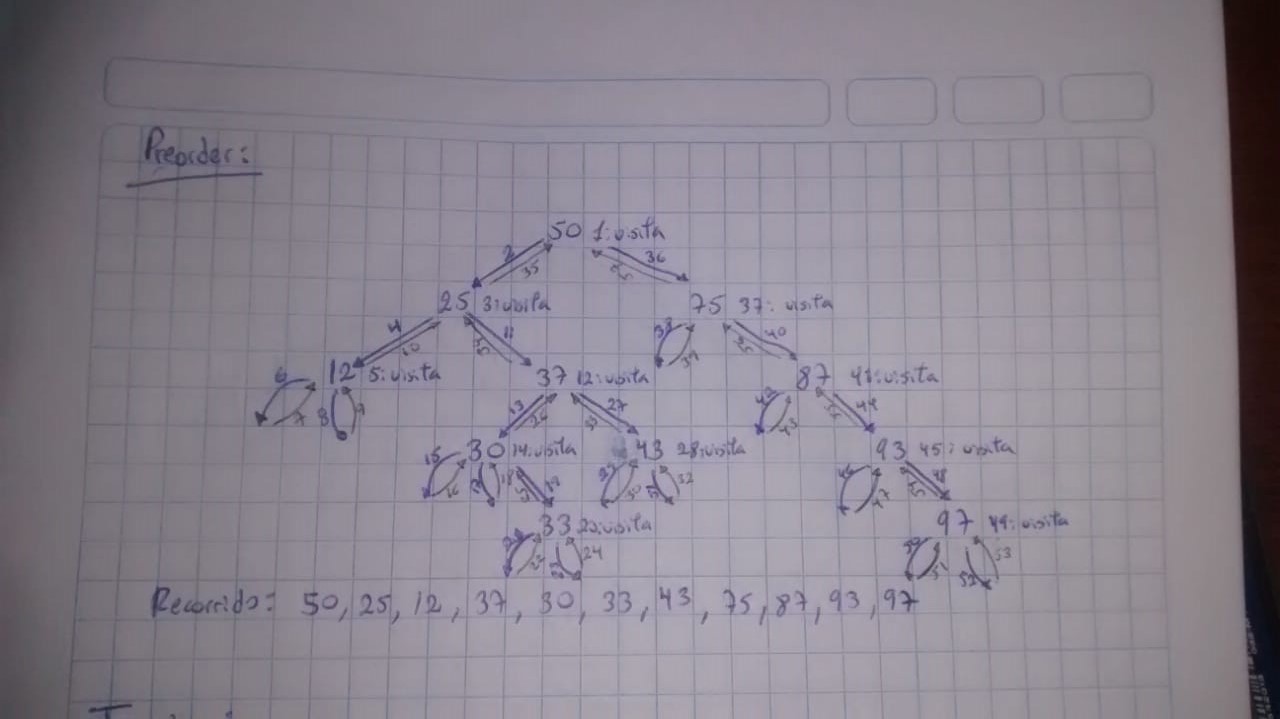 Preorder:
50 1: visita
2 35 36
25 3: visita 75 37: visita
4 10 11 38 39 40
12 5: visita 37 12: visita 87 41: visita
6 7 8 9 13 26 27 42 43 44
30 14: visita 43 28: visita 93 45: visita
15 16 18 19 30 32 46 47 48
33 20: visita 97 49: visita
24 52 53
Recorrido: 50, 25, 12, 37, 30, 33, 43, 75, 87, 93, 97